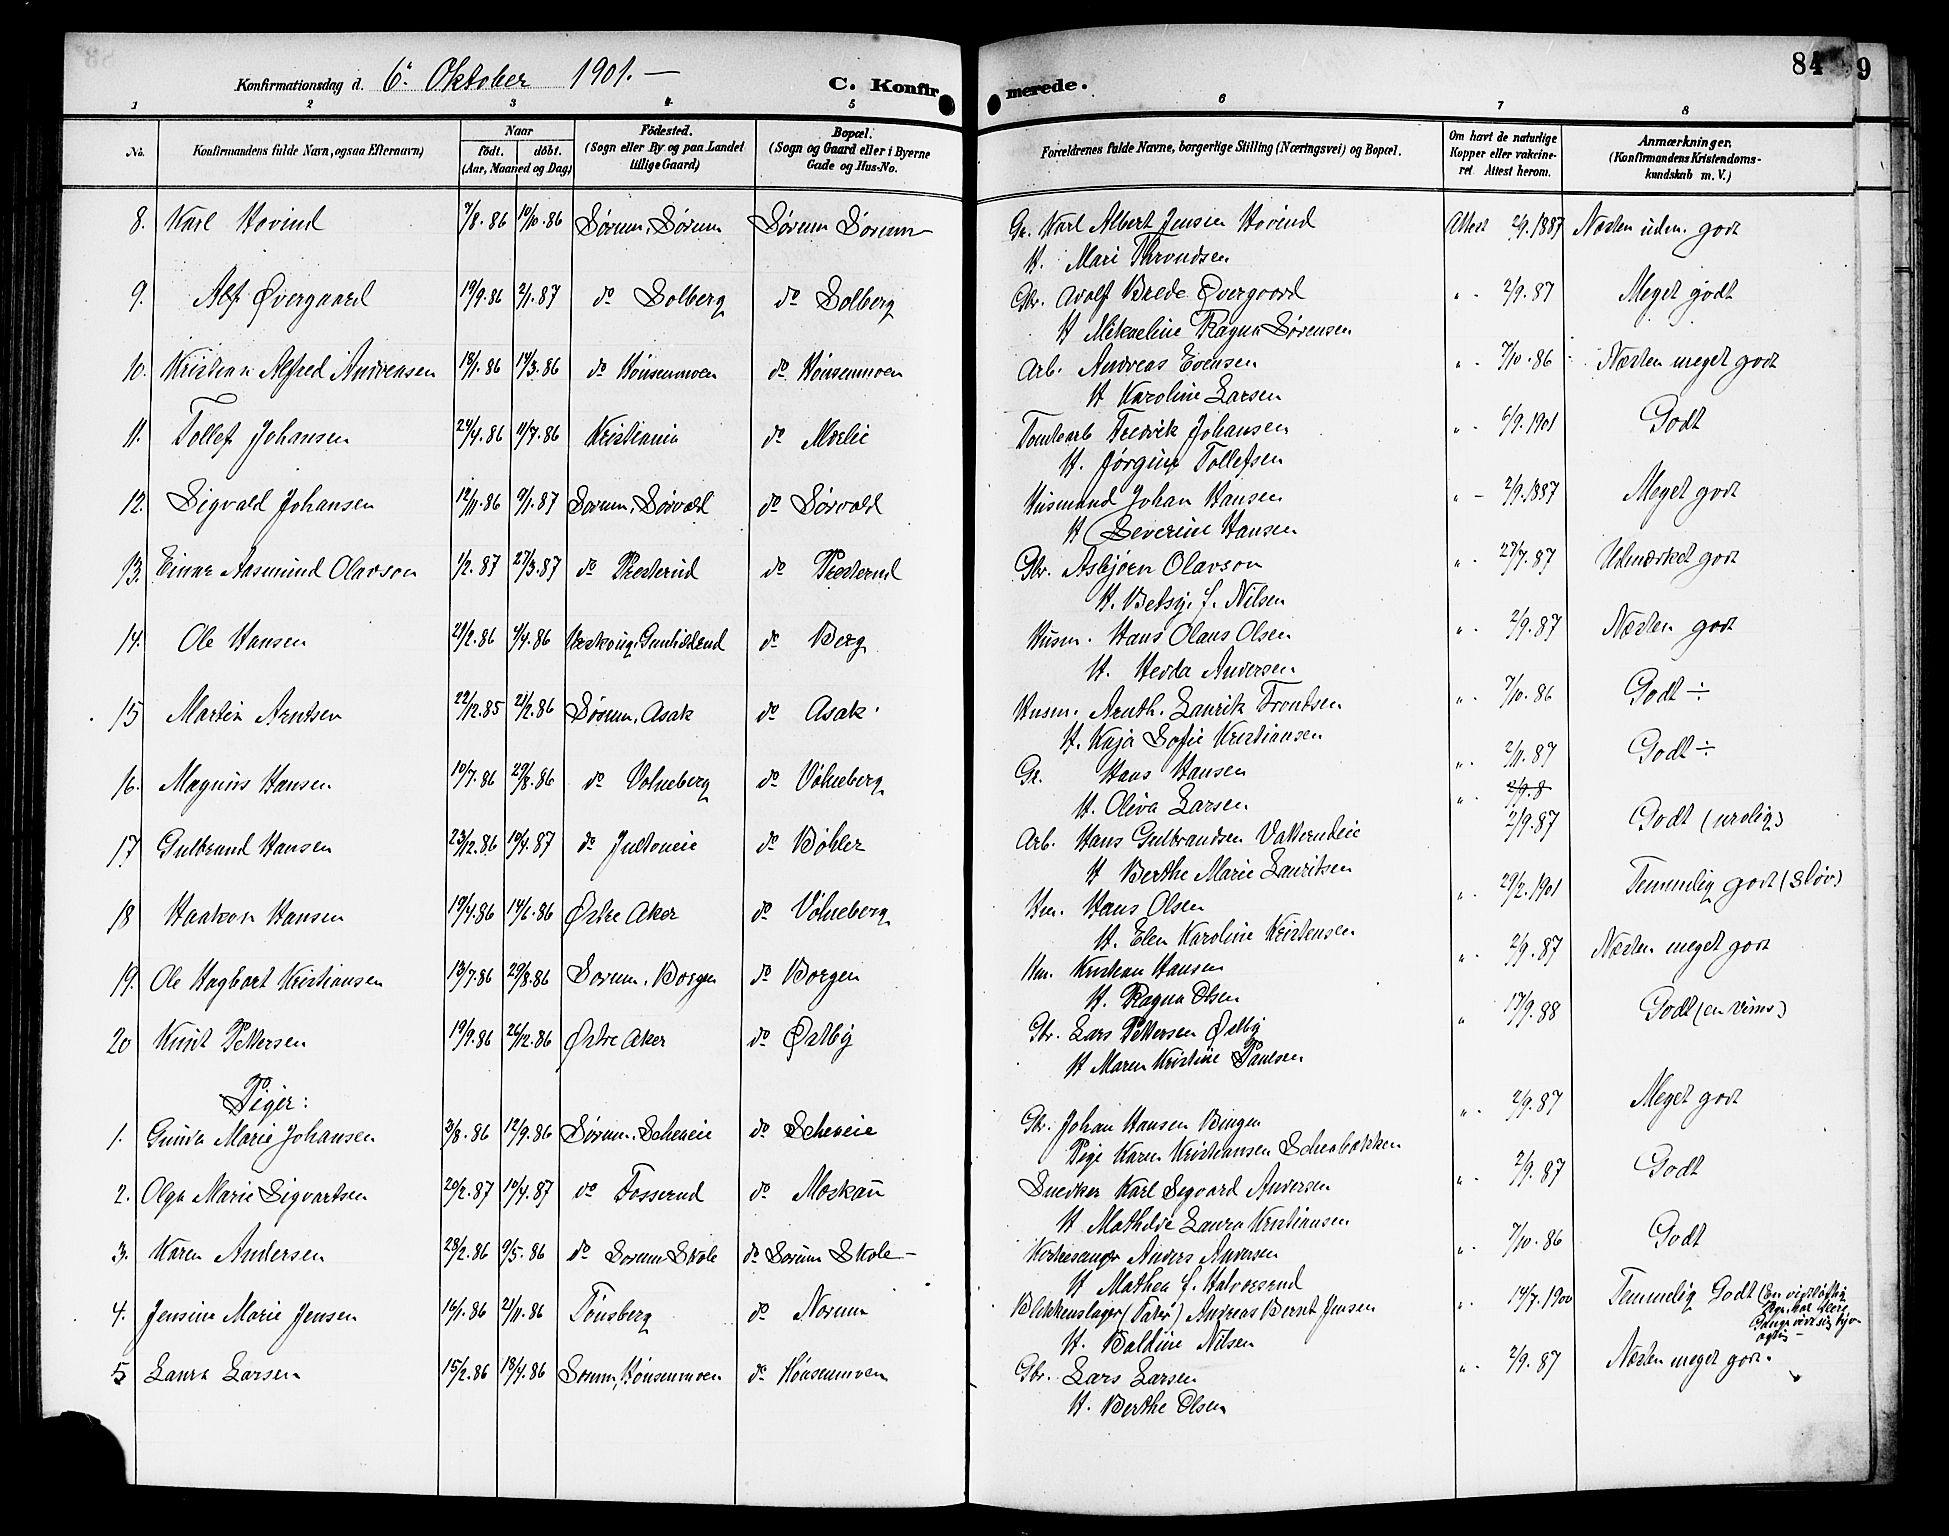 Konfirmationsdag d. 6. Oktober 1901. —
C. Konfir merede.
84
9
1 2 3 4 5 6 7 8
No. Konfirmandens fulde Navn, ogsaa Efternavn) Naar födt. döbt. (Aar, Maaned og Dag) Födested. (Sogn eller By og paa Landet tillige Gaard) Bopæl. (Sogn og Gaard eller i Byerne Gade og Hus-No. Forældrenes fulde Navne, borgerlige Stilling (Næringsvei) og Bopæl. Om havt de naturlige Kopper eller vakcineret Attest herom. Anmærkninger. (Konfirmandens Kristendomskundskab m. V.)
8. Karl Hovind 7/8.86 10/10.86 Sørum, Sørum Sørum Sørum Gr. Karl Albert Jensen Hovind Attest 2/9.1887 Næsten udm. godt
H. Mari Throndsen
9. Alf Øvergaard 19/9.86 2/1.87 do Solberg do Solberg Gbr. Adolf Brede Øvergaard " - 2/9.87 Meget godt
H Mikaeline Ragna Sørensen
10. Kristian Alfred Andreasen 18/1.86 14/3.86 do Hønsenmoen do. Hønsenmoen Arb. Andreas Evensen " - 7/10.86 Næsten meget godt
H Karoline Larsen
11. Tollef Johansen 24/4.86 11/7.86 Kristiania do Mælie Tomtearb Fredrik Johansen " - 6/9.1901 Godt
H. Jørgine Tollefsen
12. Sigvald Johansen 12/11.86 9/1.87 Sørum, Sørvald do Sørvald Husmand Johan Hansen " - 2/9.1887 Meget godt
H Severine Hansen
13. Einar Aasmund Olavson 1/2.87 27/3.87 do Presterud do Presterud Gbr. Asbjørn Olavson " - 27/7.87 Udmærket godt
H. Betsy f. Nilsen
14. Ole Hansen 21/2.86 4/4.86 Urskoug, Gunhildrud do Berg Husm. Hans Olaus Olsen " - 2/9.87 Næsten godt
H. Hedda Andersen
15 Martin Arntsen 22/12.85 21/2.86 Sørum, Asak do Asak Husm. Arnth. Laurik Trondsen " - 7/10.86 Godt ÷
H. Kaja Sofie Kristiansen
16. Magnus Hansen 10/7.86 29/8.86 do Volneberg do Vølneberg Gr. Hans Hansen " - 2/11.87 Godt ÷
H. Oliva Larsen " - 2/9.8
17 Gulbrand Hansen 23/12.86 10/4.87 do do Bøhler Arb. Hans Gulbrandsen Vakterudeie 2/9.87 Godt (urolig)
H Berthe Marie Lauritsen
18 Haakon Hansen 19/4.86 14/6.86 Østre Aker do Vølneberg Hm. Hans Olsen " - 29/2.1901 Temmelig godt (sløv)
H. Elen Karoline Kristensen
19. Ole Hagbart Kristiansen 13/7.86 29/8.86 Sørum, Borgen do Borgen Hm. Kristian Hansen " - 2/9.87 Næsten meget godt
H. Ragna Olsen
20 Knut Pettersen 19/9.86 26/12.86 Østre Aker do Østby Gbr. Lars Pettersen Østby " 17/9.88 Godt
H Maren Kristine Paulsen
Piger:
1. Gunda Marie Johansen 3/8.86 12/9.86 Sørum, Scheneie do Scheneie Gbr. Johan Hansen Bingen " - 2/9.87 Meget godt
Pige Karen Kristiansen Schenbakken
2. Olga Marie Sigvartsen 20/2.87 10/4.87 do Fosserud do Moskau Snedker Karl Sigvard Andersen " - 2/9.87 Godt
H Mathilde Laura Kristiansen
3. Karen Andersen 28/2.86 9/5.86 do Sørum Skole do Sørum Skole Kirkesanger Anders Andersen " - 7/10.86 Godt
H Mathea f. Halvorsrud
4. Jensine Marie Jensen 16/1.86 21/11.86 Tønsberg do Norum Blikkenslager (Fater) Andreas Bernt Jensen " - 14/7.1900 Temmelig Godt (En vidløftig Pige, har flere Gange
H. Baldine Nilsen
5 Laura Larsen 15/2.86 18/4.86 Sørum, Hønsenmoen do Hønsenmoen Gbr. Lars Larsen " - 2/9.87 Næsten meget godt.
H. Berthe Olsen